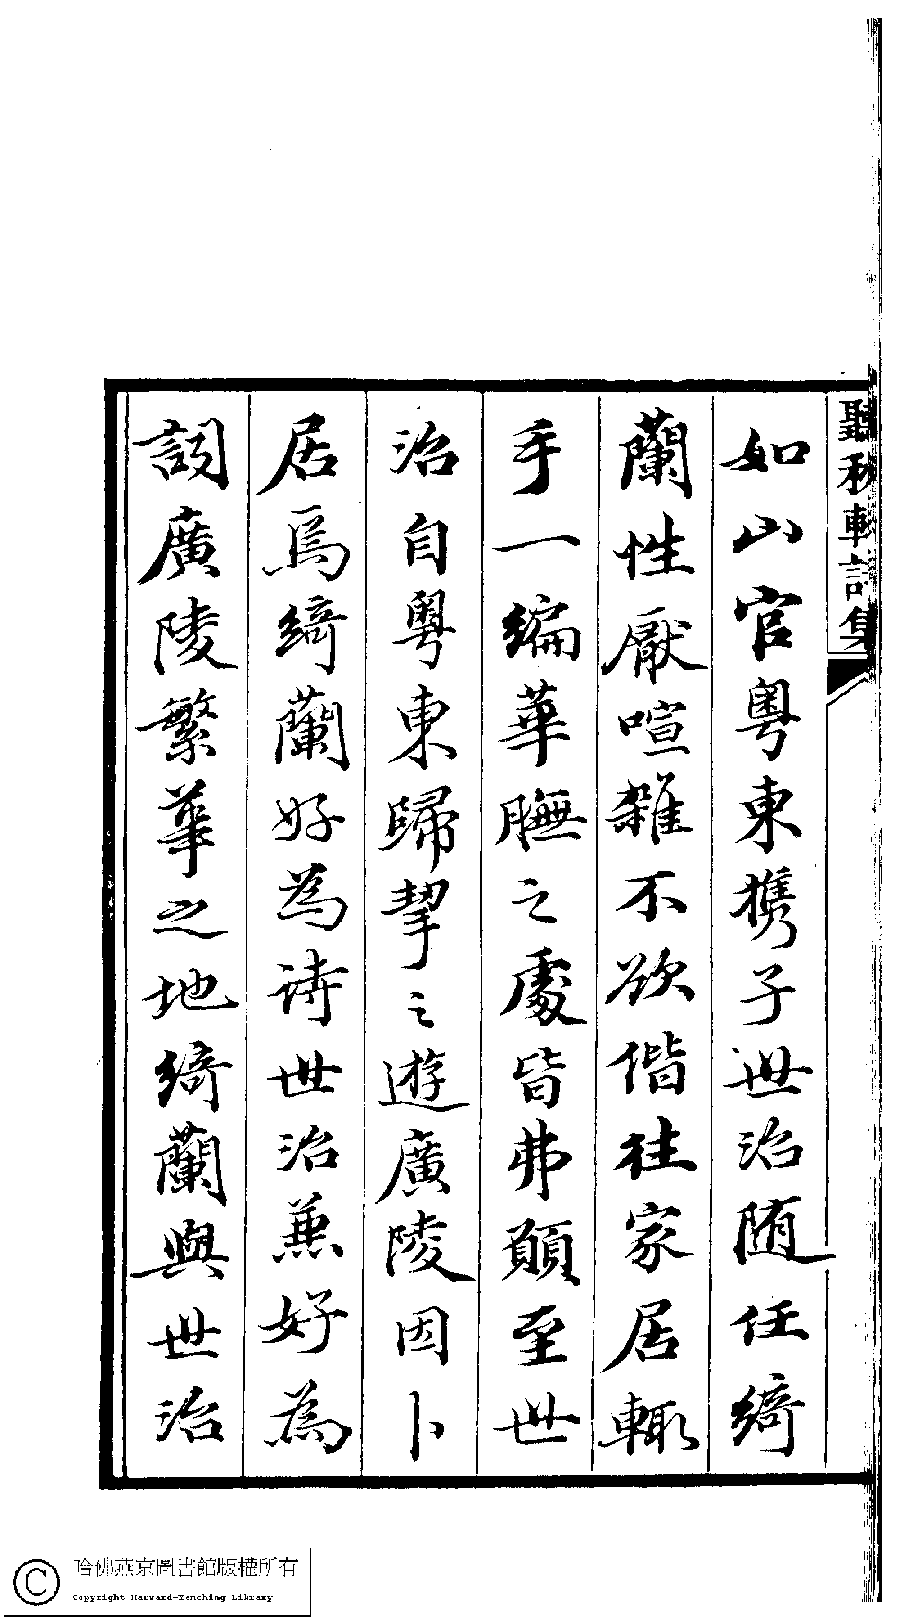 聽秋軒詩集
如山官粵東携子世治随任綺
蘭性厭喧雜不欲偕往家居輙
手一編華膴之處皆弗願至世
治自粵東歸挈之遊廣陵因卜
居焉綺蘭好為诗世治兼好為
詞廣陵繁華之地綺蘭與世治
哈佛燕京圖書館版權所有
Copyright Harvard-Yenching Library